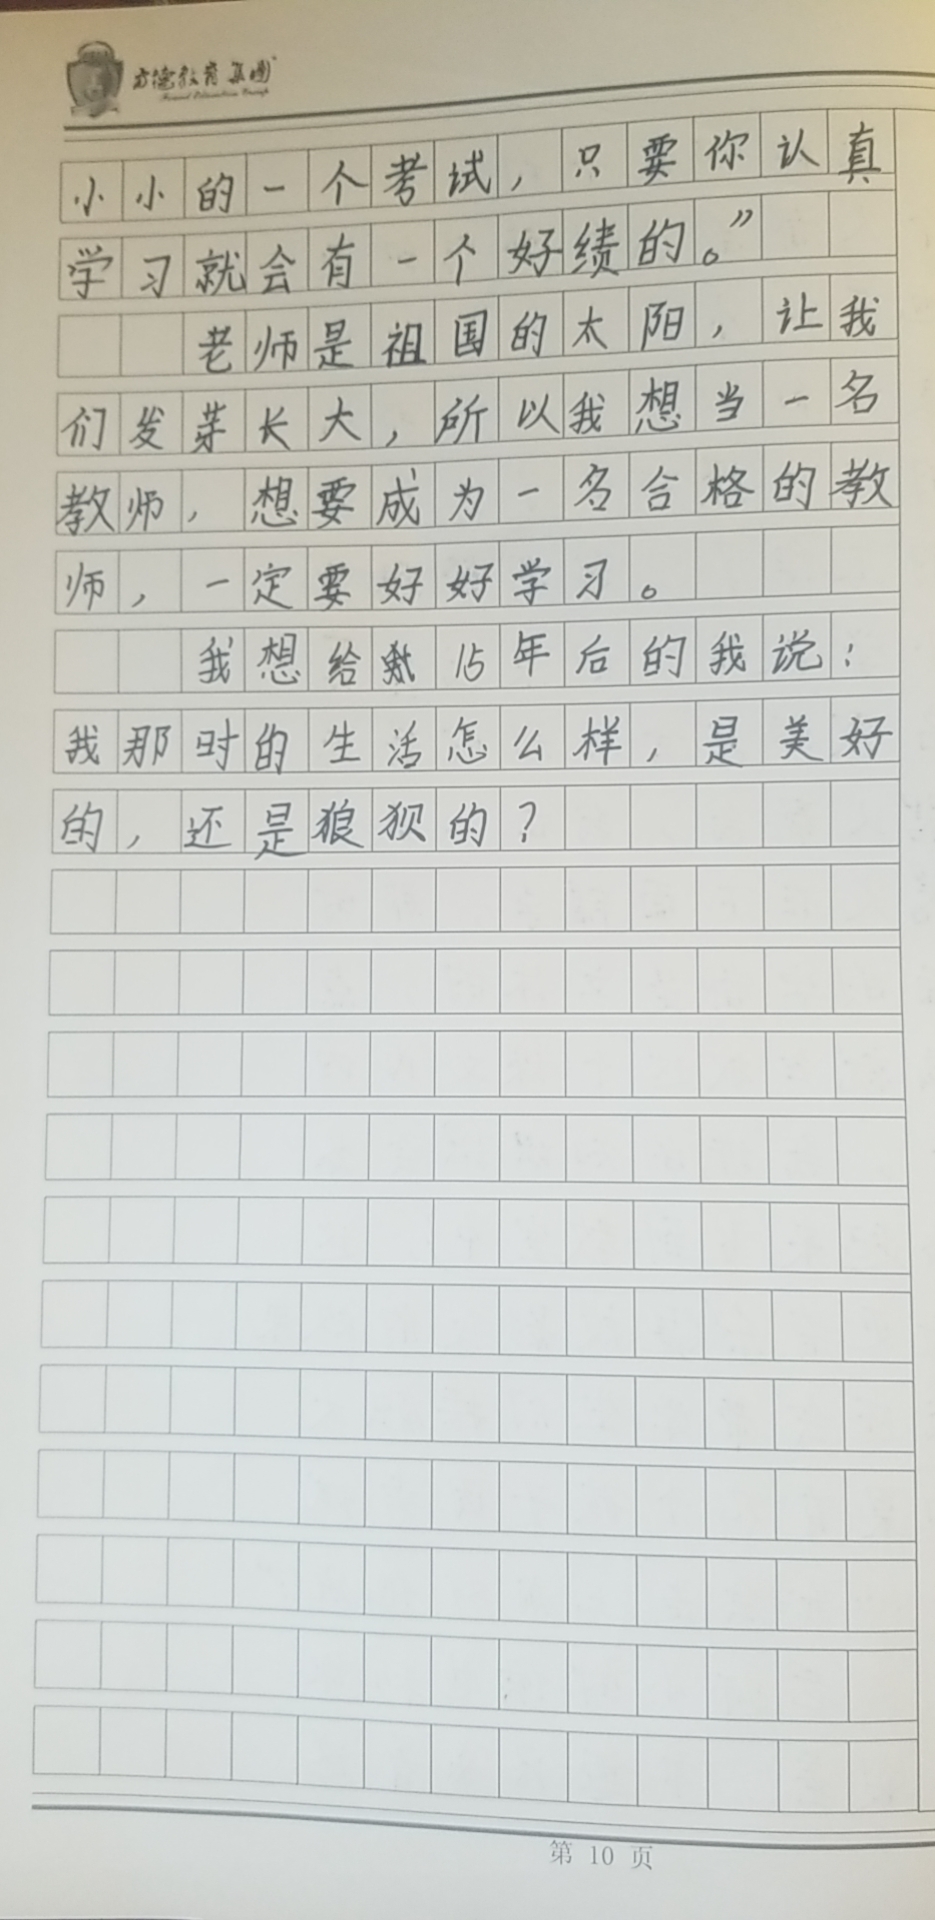 方德教育集团
小小的一个考试，只要你认真
学习就会有一个好绩的。”
老师是祖国的太阳，让我
们发芽长大，所以我想当一名
教师，想要成为一名合格的教
师，一定要好好学习。
我想给15年后的我说：
我那时的生活怎么样，是美好
的，还是狼狈的？
第 10 页